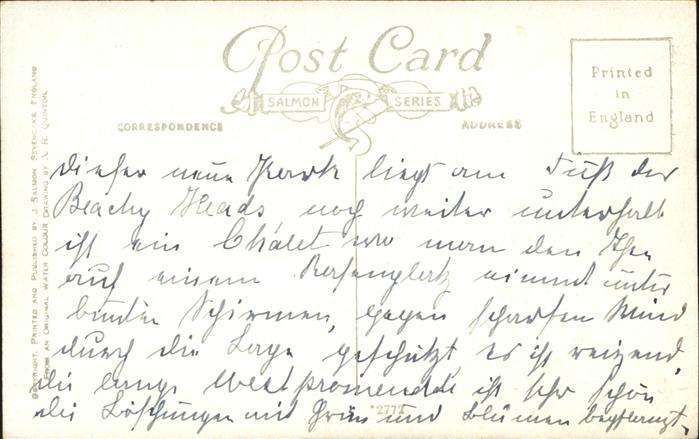 Post Card
SALMON SERIES
CORRESPONDENCE
ADDRESS
Printed
in
England
COPYRIGHT. PRINTED AND PUBLISHED BY J. SALMON SEVENOAKS ENGLAND
FROM AN ORIGINAL WATER COLOUR DRAWING BY A. R. QUINTON.
dieser neue Park liegt am Fuß der
Beachy Heads noch weiter unterhalb
ist ein Châlet wo man den Thee
auf einem Rasenplatz nimmt unter
bunten Schirmen, gegen scharfen Wind
durch die Lage geschützt es ist reizend,
die lange Westpromenade ist sehr schön
die Böschungen mit Grün und Blumen bepflanzt.
*2771